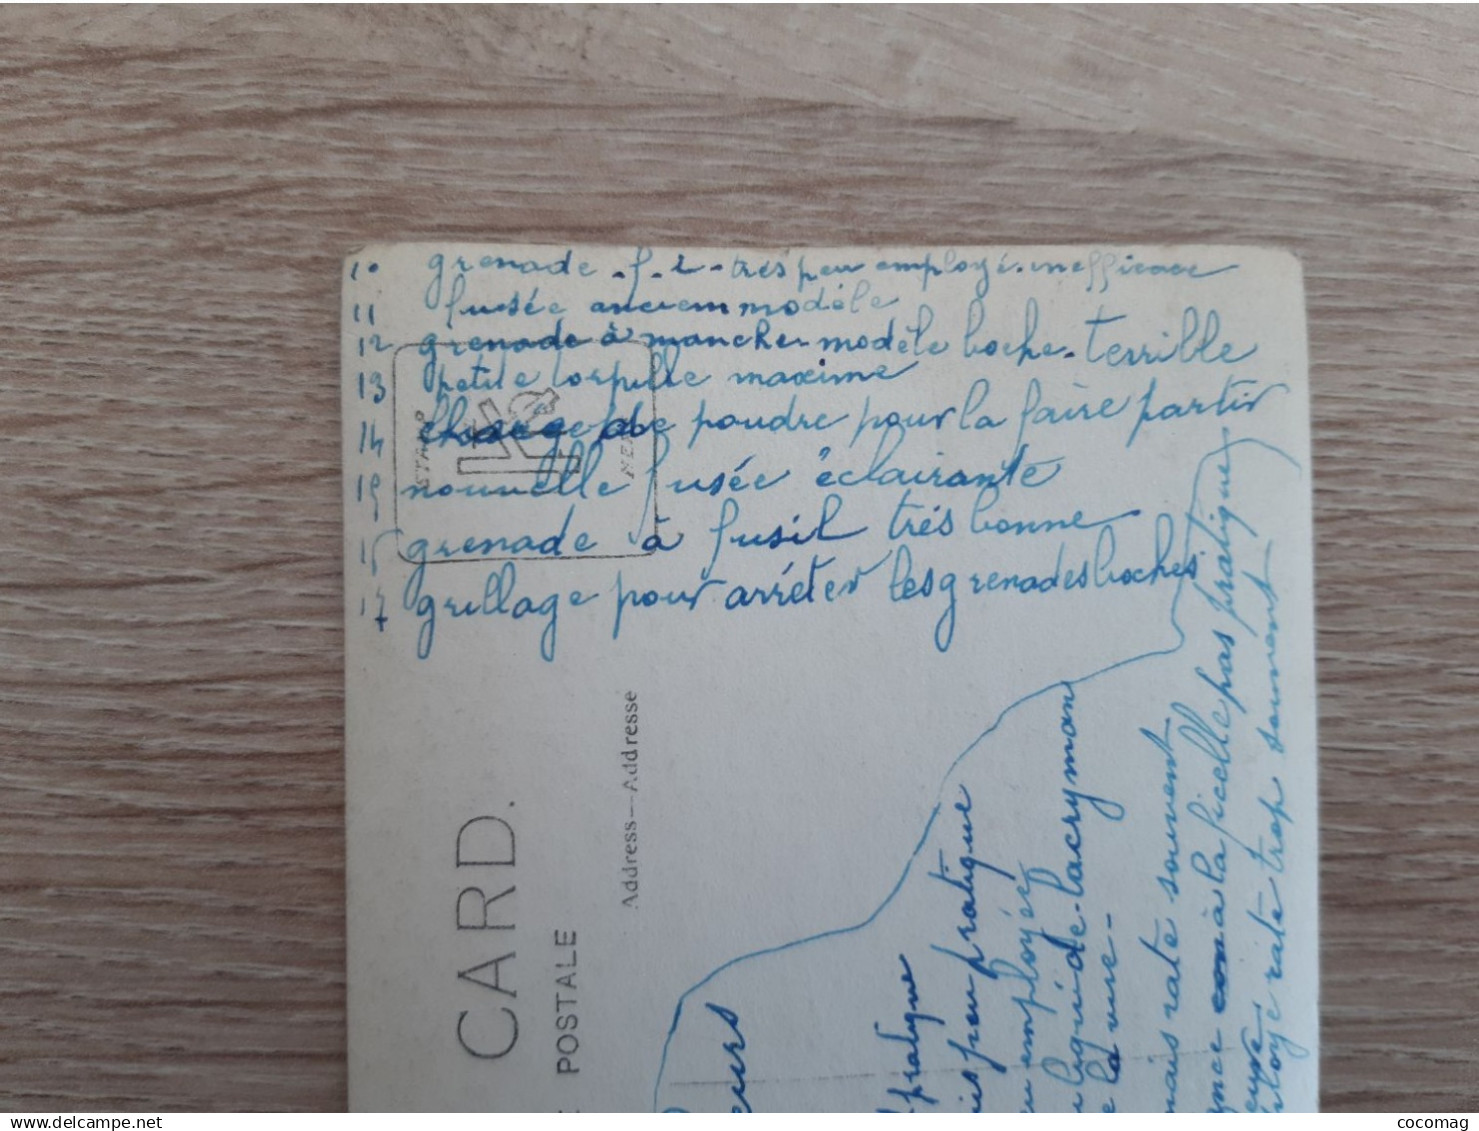 10 grenade - f - 1 - très peu employé - inefficace
11 fusée ancien modèle
12 grenade à manche - modèle boche - terrible
13 petite torpille maxime
14 charge de poudre pour la faire partir
15 nouvelle fusée éclairante
15 grenade à fusil très bonne
17 grillage pour arréter les grenades boches
STAMP
HERE
CARD.
POSTALE
Address—Addresse
pratique
peu pratique
employée
liquide - lacryman
la vue -
mais rate souvent
à la ficelle pas pratique
rate trop souvent
cocomag